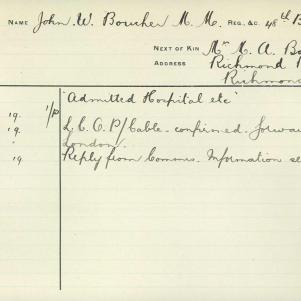 NAME John W. Boucher M. Mc. REG. &C. 48th B
NEXT OF KIN Mrs M. A. Bo
ADDRESS Richmond
Richmond
1/P "Admitted Hospital etc"
19. L. C. O. P/Cable. confirmed. Forwa
19.
" London.
19 Reply from Commns. Information se